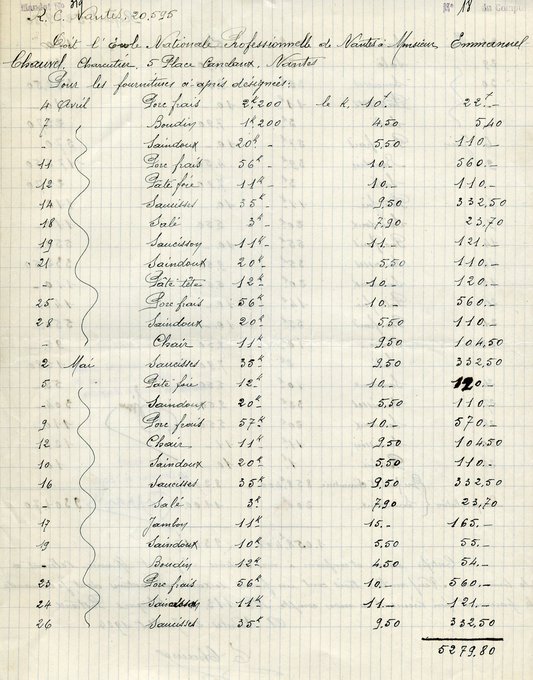 Mandat No 319 No 18 du Compte
R. C. Nantes, 20,595
Doit l'École Nationale Professionnelle de Nantes à Monsieur Emmanuel
Chauvel, Charcutier, 5 Place Canclaux, Nantes
Pour les fournitures ci après désignées:
4 Avril Porc frais 2K,200 le K. 10f 22f-
7 Boudin 1K200 4,50 5,40
Saindoux 20K- 5,50 110.-
11 Porc frais 56K- 10.- 560.-
12 Pâté foie 11K- 10.- 110.-
14 Saucisses 35K- 9,50 332,50
18 Salé 3K- 7,90 23,70
19 Saucisson 11K- 11.- 121.-
21 Saindoux 20K- 5,50 110.-
- Pâté tête 12K- 10.- 120.-
25 Porc frais 56K- 10.- 560.-
28 Saindoux 20K- 5,50 110.-
- Chair 11K- 9,50 104,50
2 Mai Saucisses 35K- 9,50 332,50
5 Pâté foie 12K- 10.- 120.-
- Saindoux 20K- 5,50 110.-
9 Porc frais 57K- 10.- 570.-
12 Chair 11K- 9,50 104,50
10 Saindoux 20K- 5,50 110.-
16 Saucisses 35K- 9,50 332,50
- Salé 3K- 7,90 23,70
17 Jambon 11K- 15.- 165.-
19 Saindoux 10K- 5,50 55.-
- Boudin 12K- 4,50 54.-
23 Porc frais 56K- 10.- 560.-
24 Saucisson 11K- 11.- 121.-
26 Saucisses 35K- 9,50 332,50
5279,80